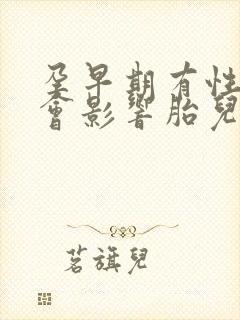 孕早期有性
會影響胎兒
茗旗兒